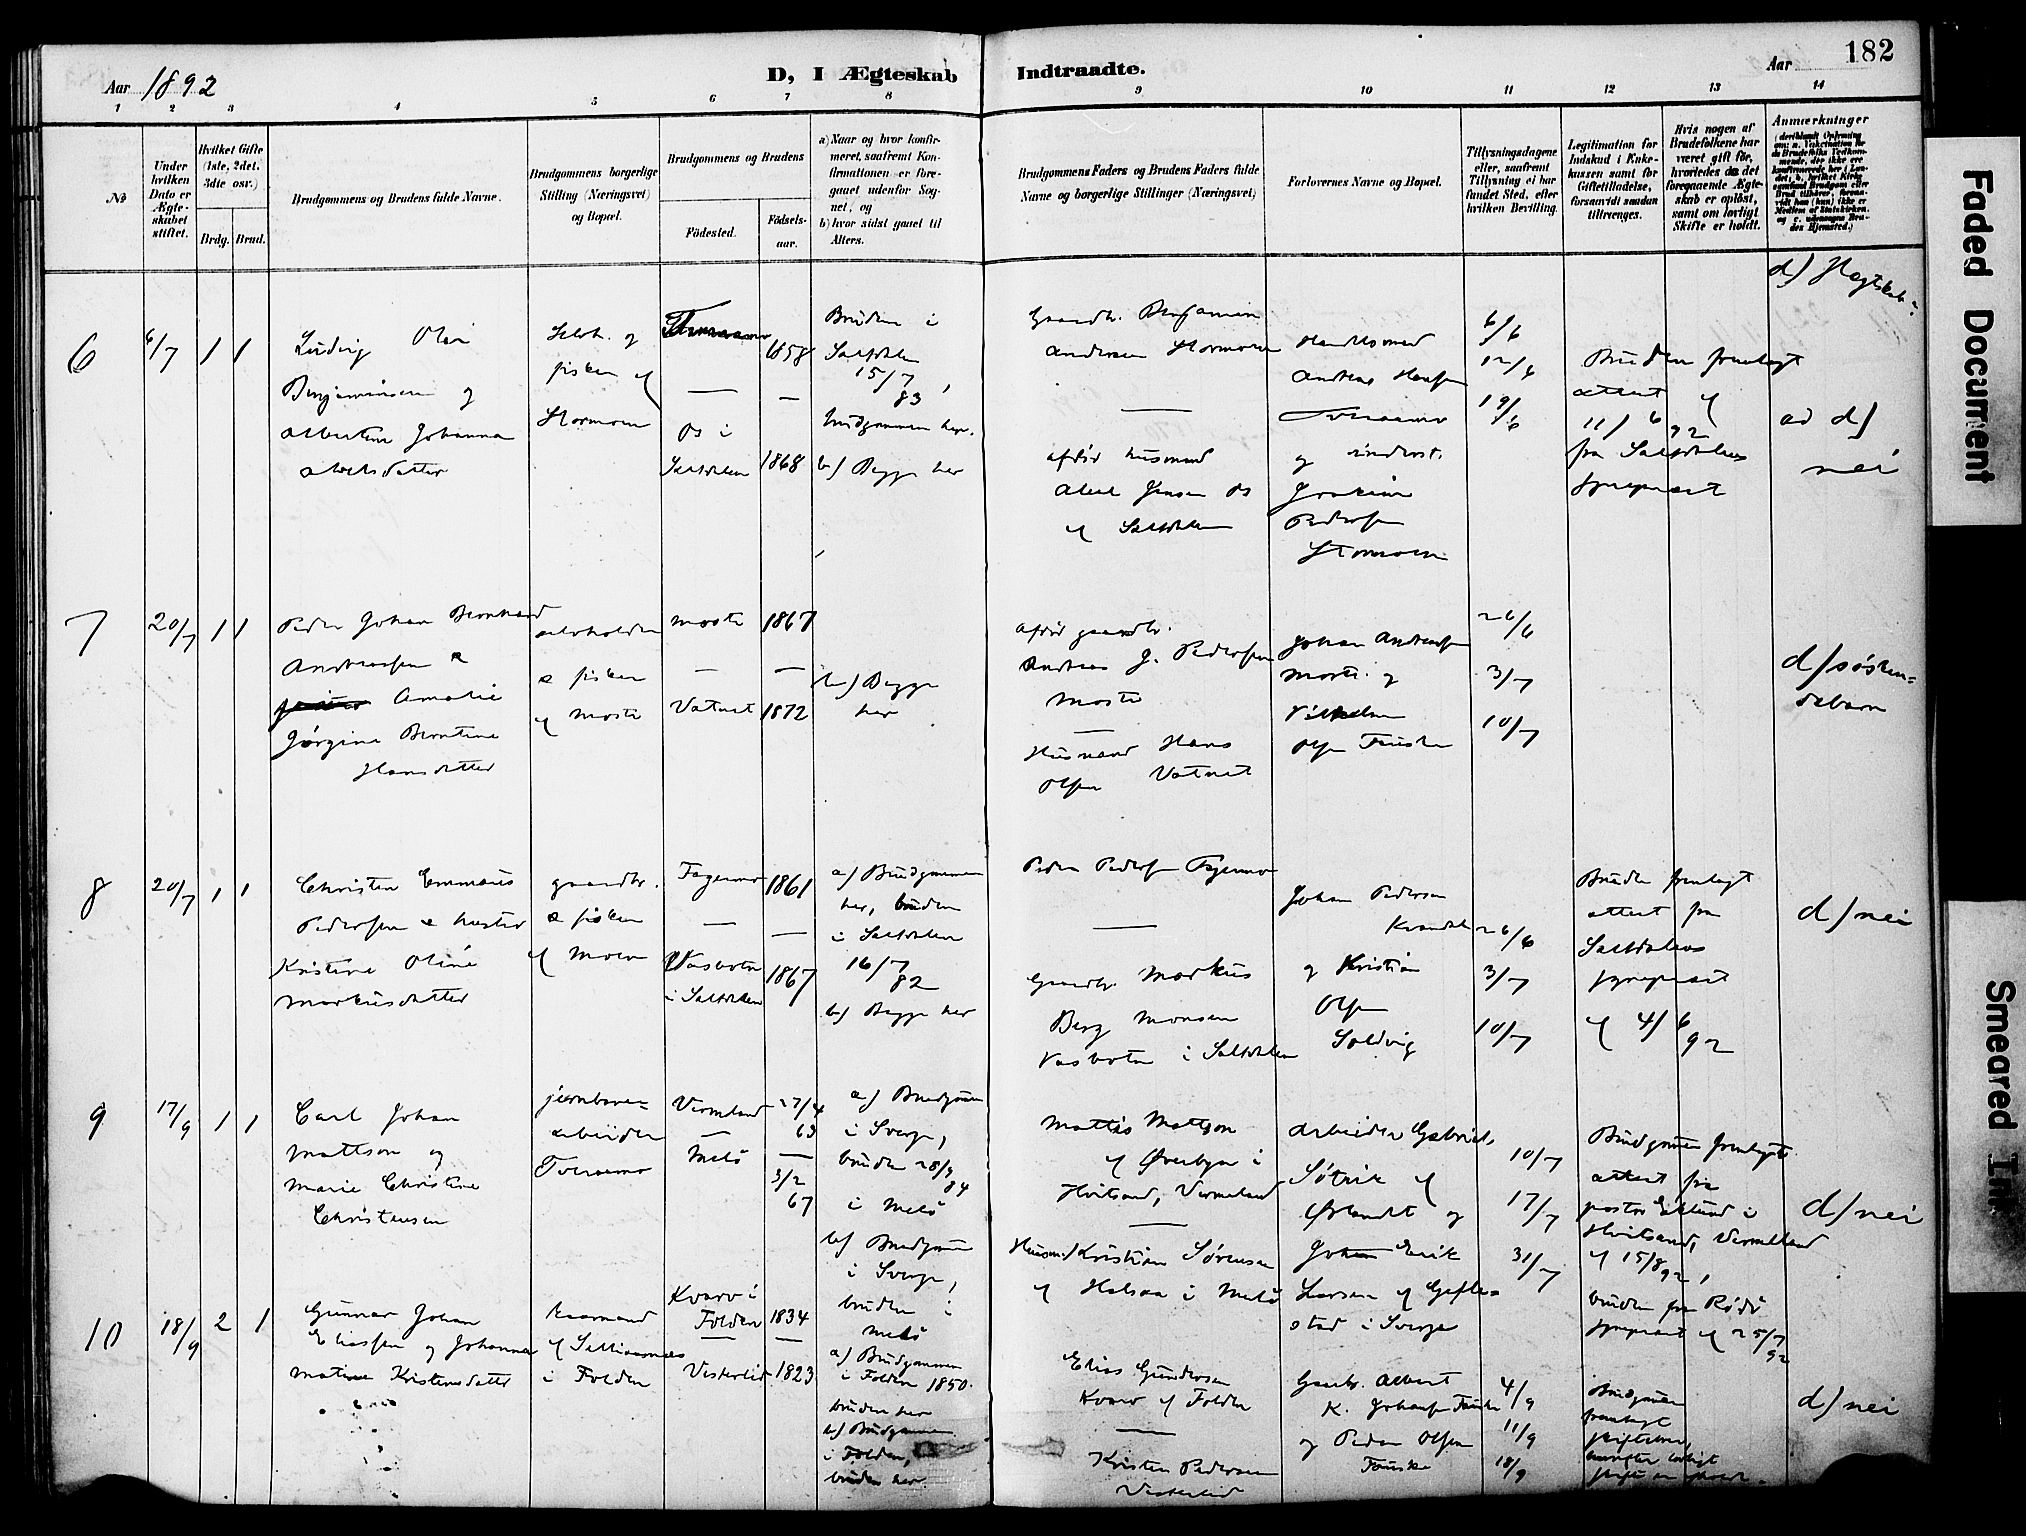 182
Aar 1892
D, I Ægteskab Indtraadte.
Aar
1 2 3 4 5 6 7 8 9 10 11 12 13 14
No
Under hvilken Dato er Ægteskabet stiftet.
Hvilket Gifte (1ste, 2det, 3dte osv.)
Brdg. Brud.
Brudgommens og Brudens fulde Navne.
Brudgommens borgerlige Stilling (Næringsvei) og Bopæl.
Brudgommens og Brudens
Fødested.
Fødselsaar.
a) Naar og hvor konfirmeret, saafremt Konfirmationen er foregaaet udenfor Sognet, og
b) hvor sidst gaaet til Alters.
Brudgommens Faders og Brudens Faders fulde Navne og borgerlige Stillinger (Næringsvei)
Forlovernes Navne og Bopæl.
Tillysningsdagene eller, saafremt Tillysning ei har fundet Sted, efter hvilken Bevilling.
Legitimation for Indskud i Enkekassen samt for Giftetilladelse, forsaavidt saadan tiltrænges.
Hvis nogen af Brudefolkene har været gift før, hvorledes da det foregaaende Ægteskab er opløst, samt om lovligt Skifte er holdt.
Anmærkninger
6
6/7
1 1
Ludvig Olai
Benjaminsen og
Albertine Johanna
Abelsdatter
Selvh. og
fisker af
Stormoen
1858
—
Os i
Saltdalen 1868
Bruden i
Saltdalen
15/7
83
brudgommen her.
b) Begge her
Gaardbr. Benjamin
Andersen Stormoen
—
afdød husmand
Abel Jensen Os
af Saltdalen
Handelsmand
Andreas Hansen
Tveraamo
og inderst.
Joakim
Pedersen
Stormoen
6/6
12/6
19/6
Bruden fremlagt
attest af
11/6 92
fra Saltdalens
sogneprest
ad d)
nei
7
20/7
1 1
Peder Johan Bernhard
Andreassen &
Amalie
Jørgine Berntine
Hansdatter
selvholden
& fisker
af Moste
Moste 1867
—
Vatnet 1872
b) Begge
her
Afdød gaardbr.
Andreas J. Pedersen
Moste
—
Husmand Hans
Olsen Vatnet
Johan Andreassen
Moste og
Vilhelm
Olsen Fauske
26/6
3/7
10/7
d) søsken=
debarn
8
20/7
1 1
Christen Emmaus
Pedersen &
Kristine Oline
Markusdatter
gaardbr.
& fisker
af Moen
Fagermo 1861
—
Vasbotn
i Saltdalen 1867
a) Brudgommen
her, bruden
i Saltdalen
16/7
82
b) Begge her
Peder Pedersen Fagermo
—
Gaardbr. Markus
Berg Monsen
Vasbotn i Saltdalen
Johan Pedersen
Kvandal
og Kristian
Olsen
Soldvig
26/6
3/7
10/7
Bruden fremlagt
attest fra
Saltdalens
sogneprest
af 4/6 92
d) nei
9
17/9
1 1
Carl Johan
Mattson og
Marie Christine
Christensen
jernbane=
arbeider
Tveraamo
Vermland 27/4
63
—
Melø 3/2
67
a) Brudgommen
i Sverge,
bruden 28/9
84
i Melø
b) Brudgommen
i Sverge,
bruden i
Melø
Mattis Mattson
af Øverbyn i
Hvitsand, Vermland
—
Husm. Kristian Sørensen
af Halsaa i Melø
Arbeider Gabriel
af
og
Johan Erik
Larsen af Gefle=
stad i Sverge
10/7
17/7
31/7
Brudgommen fremlagt
attest fra
pastor Eklund i
Hvitsand, Vermland
af 15/8 92,
bruden fra Rødø
sogneprest af 25/7
92
d) nei
10
18/9
2 1
Gunnar Johan
Eliassen og Johanna
Matine Kristensdatter
kaarmand
af
i Folden
Kvarv i
Folden 1834
—
Vesterlid 1823
a) Brudgommen
i Folden 1850.
bruden her
b) Brudgommen
i Folden,
bruden her.
Elias Gundersen
Kvarv af Folden
—
Kristen Pedersen
Vesterlid
Gaardbr. Albert
K. Johansen Fauske
og Peder Olsen
Fauske
4/9
11/9
18/9
Brudgommen
fremlagt
skifteattest,
d) nei
Faded Document
Smeared Ink